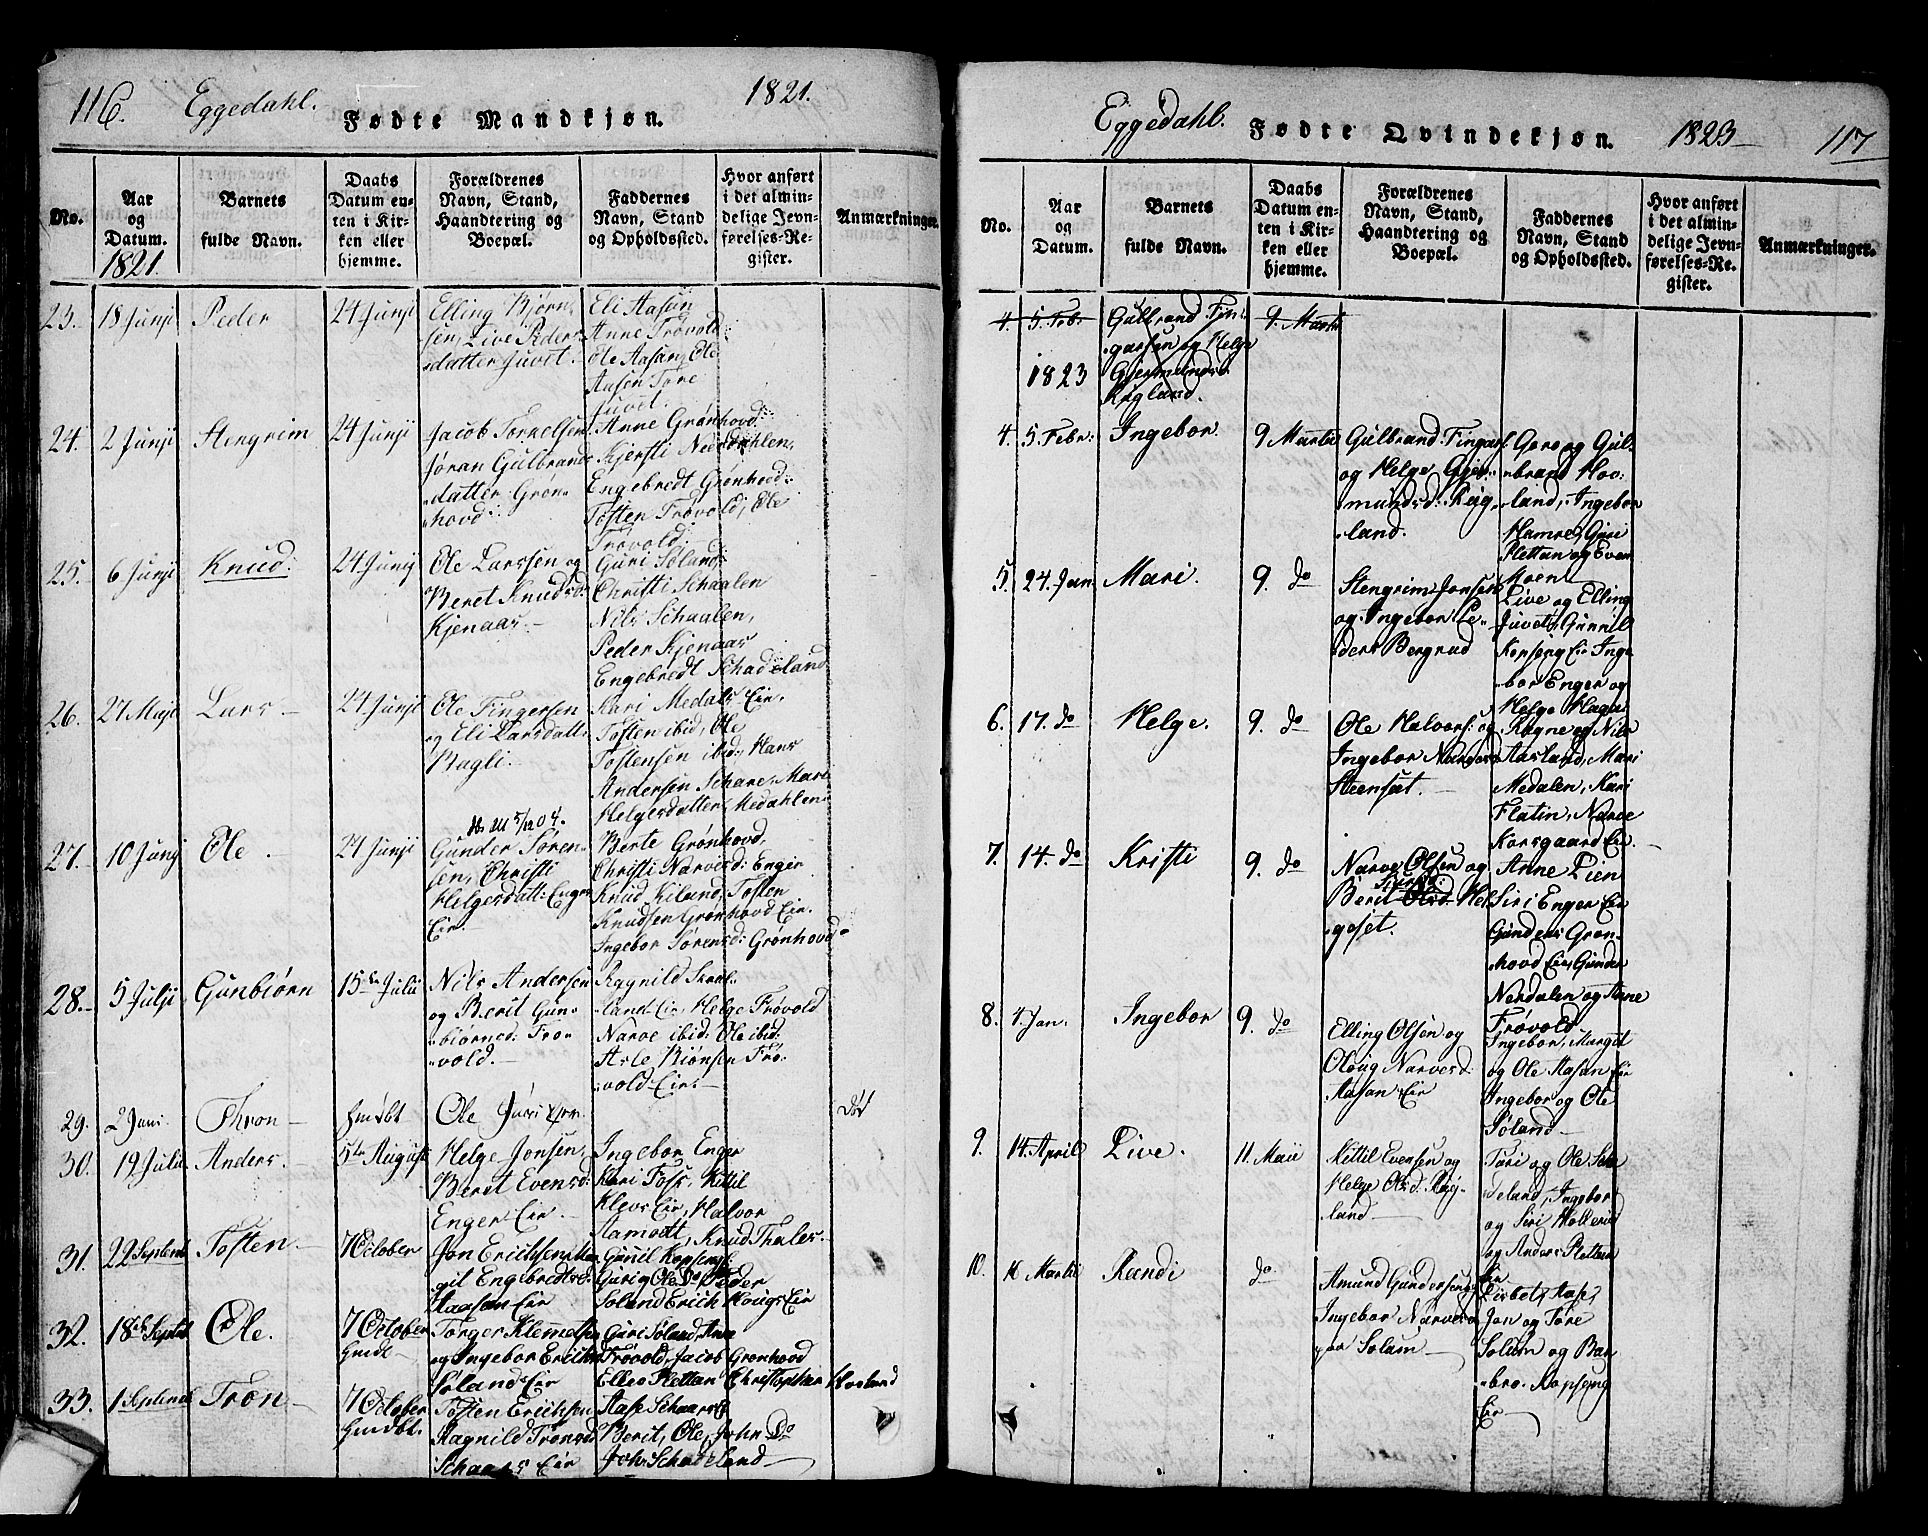 116. Eggedahl. Fødte Mandkjøn. 1821.
No.
Aar
og
Datum.
1821.
Barnets
fulde Navn.
Daabs
Datum en-
ten i Kir-
ken eller
hjemme.
Forældrenes
Navn, Stand,
Haandtering og
Boepæl.
Faddernes
Navn, Stand
og Opholdssted.
Hvor anført
i det almin-
delige Jevn-
førelses-Re-
gister.
Anmærkninger.
23. 18 Junji Peder 24 Junji
Elling Bjørn-
sen, Live Peders-
datter Juvet.
Eli Aasan
Anne Frøvold:
Ole Aasan, Ole
Aasen Tore
Juvet.
24. 2 Junji Stengrim 24 Junji
Jacob Torkelsen
Jøran Gulbrands
datter Grøn-
hovd:
Anne Grønhovd:
Kjersti Nerdahlen,
Engebredt Grønhovd:
Tosten Frøvold, Ole
Frøvold:
25. 6 Junji Knud: 24 Junij
Ole Larssen og
Beret Knudsd:
Kjenaas.
Guri Søland:
Christi Schaalen
Nils Schaalen,
Peder Kjenaas
Engebredt Schadeland
26. 27 Maji Lars 24 Junji
Ole Fingersen
og Eli Larsdatt:
Bagli.
Kari Medals Eir.
Tosten ibid, Ole
Tostensen ibid:, Hans
Andersen Schare, Mari
Helgesdatter, Medahlen
27. 10 Junj Ole. 24 Junji
5/12 04.
Gunder Søren-
sen, Christi
Helgesdatt: Enger
Eir.
Berte Grønhovd,
Christi Narvesd: Enger
Knud Kiland, Tosten
Knudsen Grønhovd Eir.
Ingebor Sørensd: Grønhovd
28. 5 Julji Gunbiørn 15de Julii
Nils Andersen
og Berit Gun-
biørnsd: Frø-
vold.
Ragnild Skal-
land Eir, Helge Frøvold
Narve ibid: Ole ibid:
Asle Biønsen Frø-
vold Eir.
29. 2 Juni. Thron hmdbt Ole Død
30. 19 Julii Anders. 5te August
Helge Jonsen,
Beret Evensd:
Enger Eir
Ingebor Enger
Kari Foss, Kittil
Klevs Eir, Halvor
Aamodt, Knud Thales.
31. 22 Septemb Tosten 7 October
Jon Erichsen
git Engebredtsd:
Aasan Eir
Gunil Kopseng
Guri og Ole Do Peder
Søland Erich Hougs Eir
32. 18de Septbr Ole. 7 October
hmdbt
Torger Klemmetsen
og Ingebor Erichs
Søland Eir
Guri Søland, Anne
Frøvold, Jacob Grønhovd
Ellev Plettan Christopher Hovland
33. 1 Septemb Tron 7 October
hmdbt.
Tosten Erichsen
Ragnild Tronsd
Schaars Eir
Aase Schaars Eir
Berit, Ole, John Do
John Schadeland
Eggedahl. Fødte Qvindekjøn. 1823 117
No.
Aar
og
Datum.
Barnets
fulde Navn.
Daabs
Datum en-
ten i Kir-
ken eller
hjemme.
Forældrenes
Navn, Stand,
Haandtering og
Boepæl.
Faddernes
Navn, Stand
og Opholdssted.
Hvor anført
i det almin-
delige Jevn-
førelses-Re-
gister.
Anmærkninger.
4. 5. Febr Gulbrand Fin- 9. Martii
garsen og Helge
1823 Gjermundsd.
Rugland.
4. 5. Febr: Ingebor 9 Martii
Gulbrand Fingars.
og Helge Gjer-
mundsd: Rug-
land.
Goro og Gul-
brand Hov-
land, Ingebor
Hamre, Guri
Plettan og Even
Moen
5. 24. Jan Mari. 9. do
Stengrim Jonsen
og Ingebor Pe-
dersd Bergrud
Live og Elling
Juvet, Gunnil
Kopseng Eir Inge-
bor Enger og
Helge Haga
6. 17. do Helge. 9. do
Ole Halvors: og
Ingebor Narvesd
Steenset.
Ragne og Nils
Aasland, Mari
Medalen, Kari
Flatin, Narve
Korsgaard Eir.
7. 14. do Kristi 9. do
Narve Olsen og
Sivertsd:
Berit Olsd: Hel-
geset.
Anne Lien
Siri Enger Eir
Gunders Grøn-
hovd Eir, Gunder
Nerdalen og Anne
Frøvold.
8. 4. Jan. Ingebor 9. do
Elling Olsen og
Oloug Narvesd:
Aasan Eir
Ingebor, Margit
og Ole Aasan Eir
Ingebor og Ole
Søland
9. 14. April Live. 11. Maii
Kittil Evensen og
Helge Olsd. Rug-
land
Turi og Ole Scha-
deland, Ingebor
og Siri Hollerud
og Anders Plettan
Eir
10. 16 Martii Randi do.
Amund Gundersen og
Ingebor Narvesd
Solum
Lisbet, Aase,
Jon og Tore
Solum og Bar-
bro Kopseng
Eir